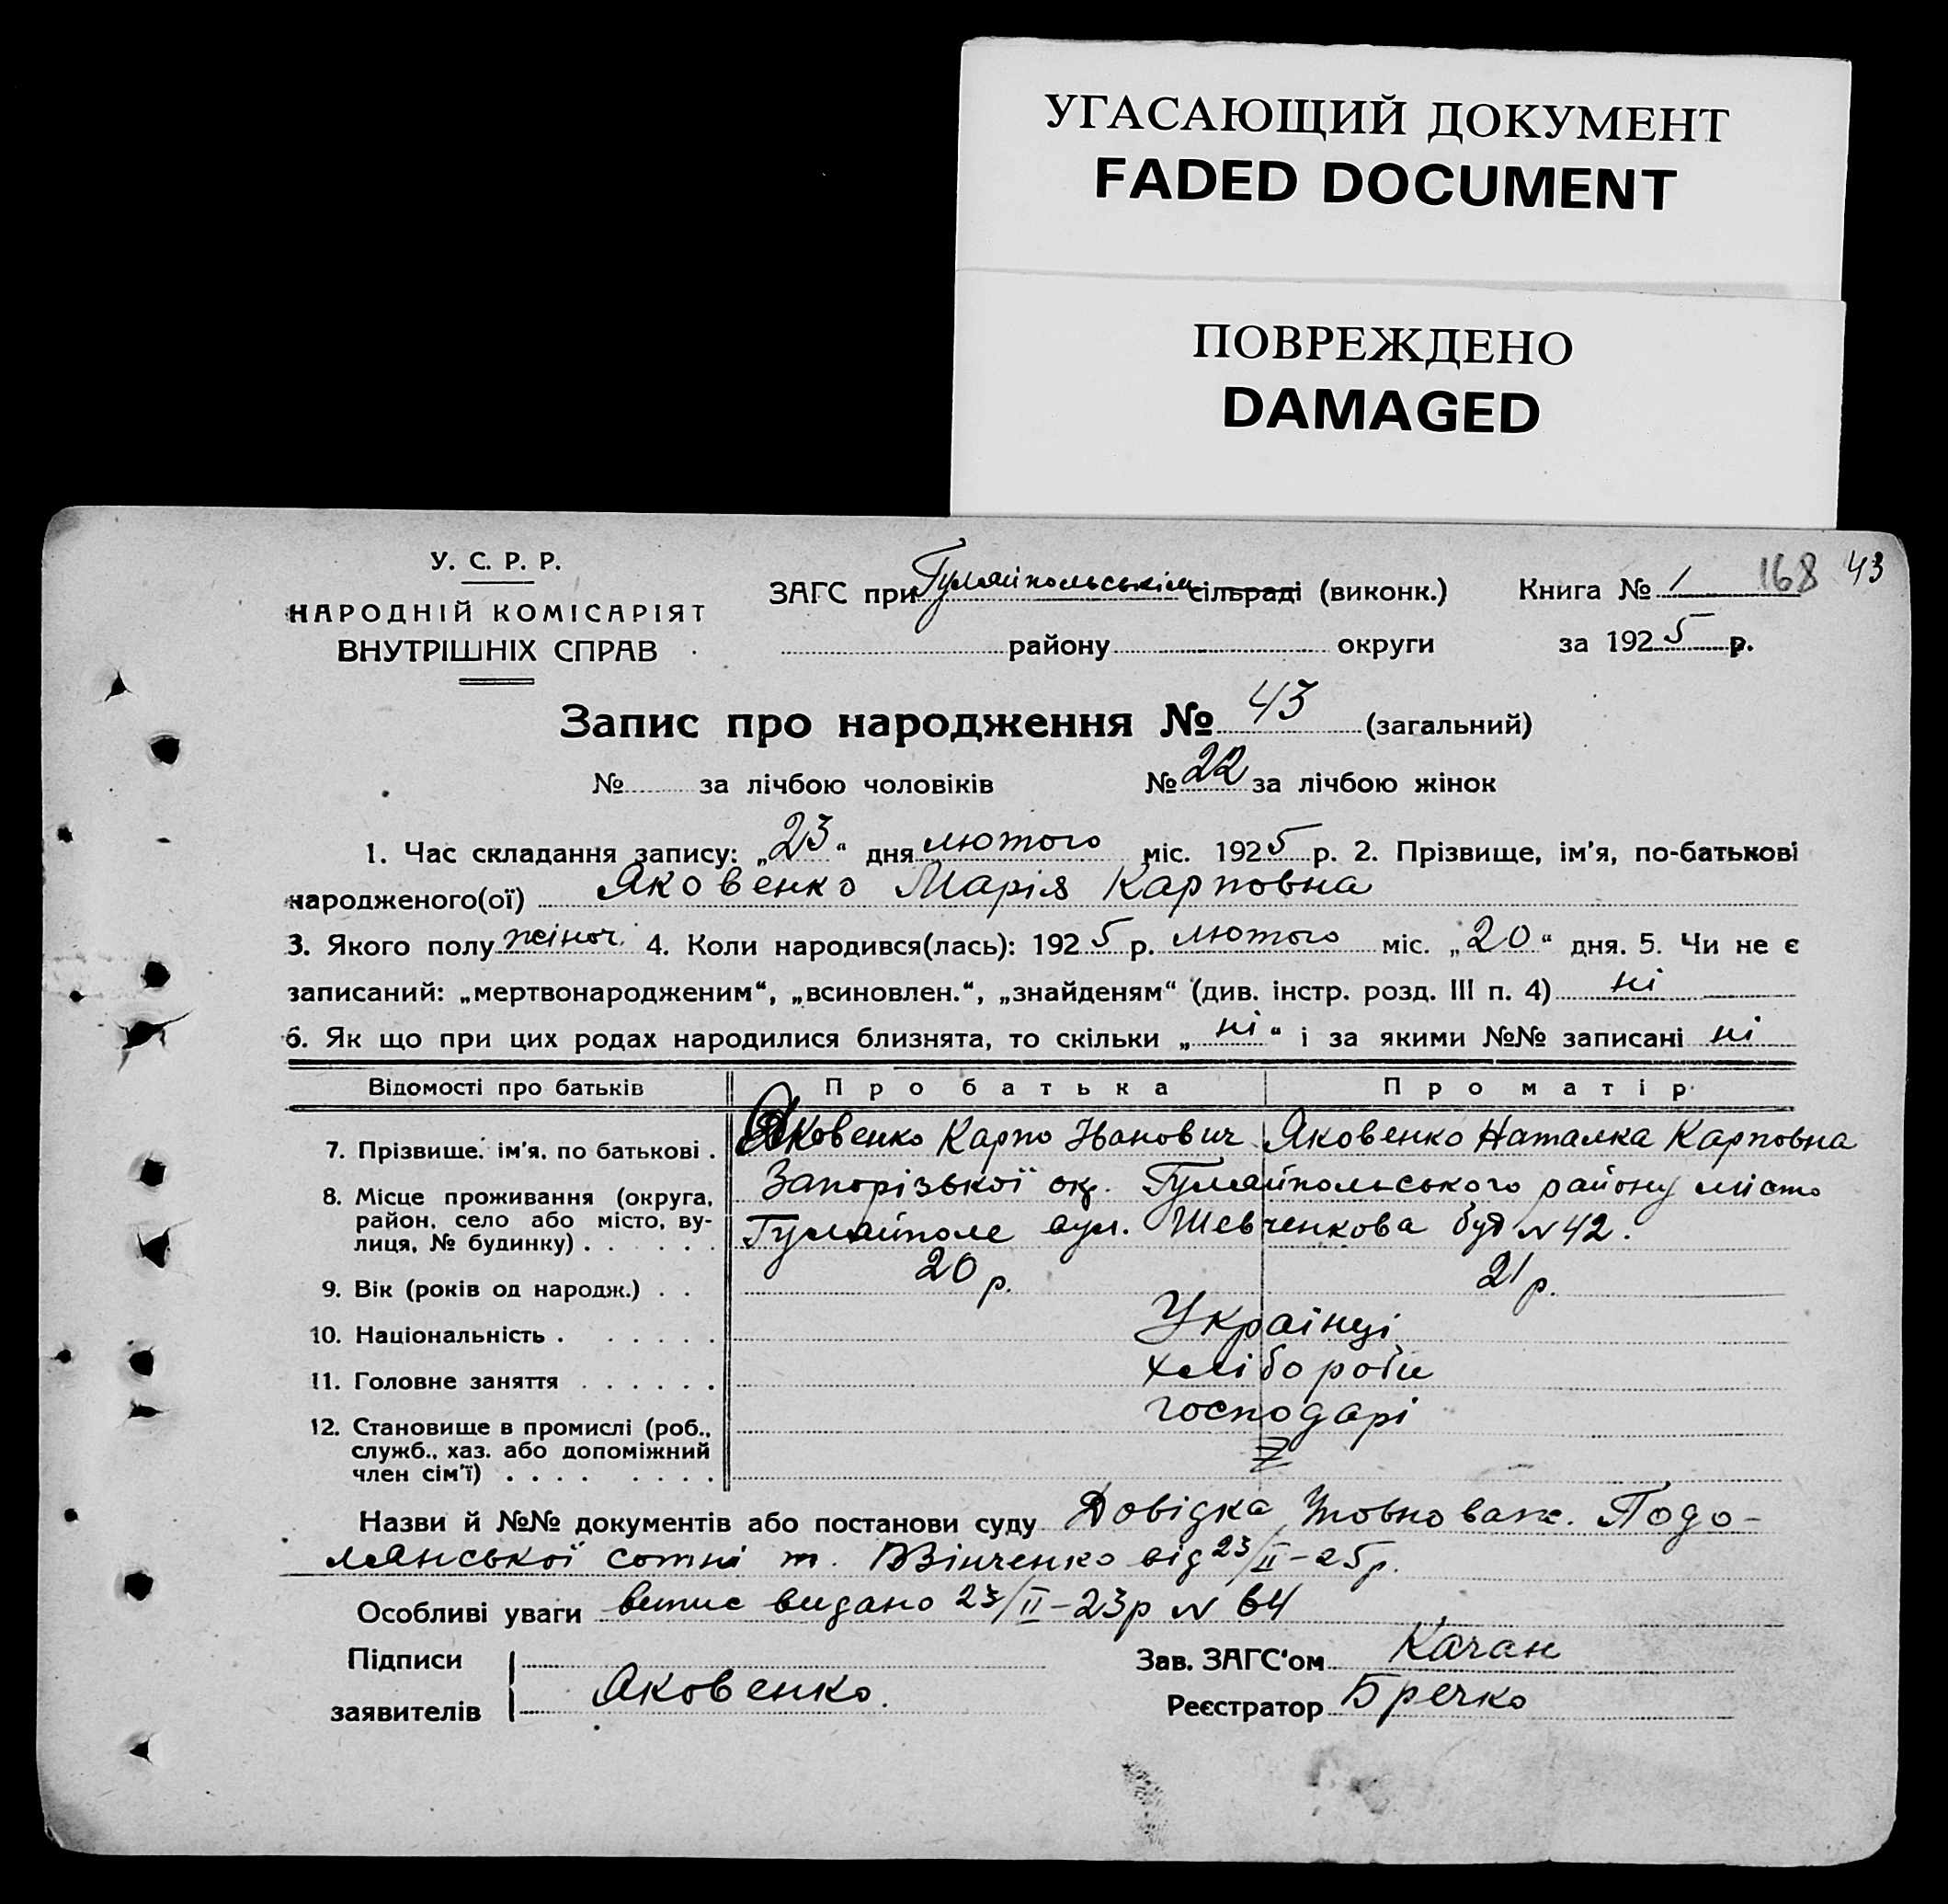 УГАСАЮЩИЙ ДОКУМЕНТ
FADED DOCUMENT
ПОВРЕЖДЕНО
DAMAGED
У. С. Р. Р.
НАРОДНІЙ КОМІСАРІЯТ
ВНУТРІШНІХ СПРАВ
ЗАГС при Гуляйпольськім сільраді (виконк.)
району округи
Книга № 1 168 43
за 1925 р.
Запис про народження № 43 (загальний)
№ за лічбою чоловіків № 22 за лічбою жінок
1. Час складання запису: „23“ дня лютого міс. 1925 р. 2. Прізвище, ім'я, по-батькові
народженого(ої) Яковенко Марія Карповна
3. Якого полу жіноч. 4. Коли народився(лась): 1925 р. лютого міс. „20“ дня. 5. Чи не є
записаний: „мертвонародженим“, „всиновлен.“, „знайденям“ (див. інстр. розд. III п. 4) ні
6. Як що при цих родах народилися близнята, то скільки „ні“ і за якими №№ записані ні
Відомості про батьків Про батька Про матір
7. Прізвище, ім'я, по батькові . Яковенко Карпо Іванович Яковенко Наталка Карповна
8. Місце проживання (округа, Запорізької окр. Гуляйпольського району місто
район, село або місто, ву-
лиця, № будинку) . . . . . . Гуляйполе вул. Шевченкова буд № 42.
9. Вік (років од народж.) . . 20 р. 21 р.
10. Національність . . . . . . Українці
11. Головне заняття . . . . . . хлібороби
12. Становище в промислі (роб., господарі
служб., хаз. або допоміжний
член сім'ї) . . . . . . . .
Назви й №№ документів або постанови суду Довідка Уповноваж. Подо-
лянської сотні т. Вінченко від 23/II-25р.
Особливі уваги випис видано 23/II-23р № 64
Підписи
заявителів Яковенко.
Зав. ЗАГС'ом Качан
Реєстратор Бречко